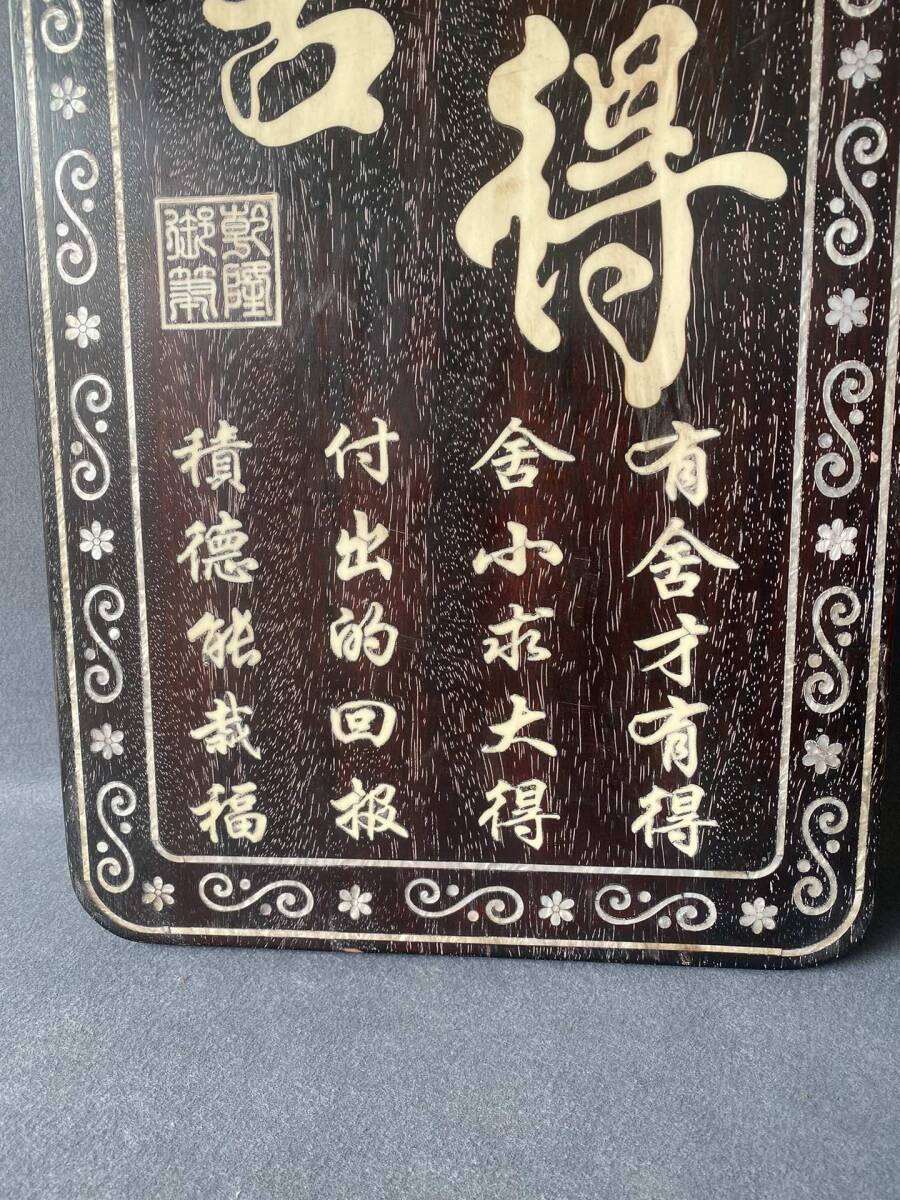 得
乾隆
御筆
有舍才有得
舍小求大得
付出的回报
積德能栽福